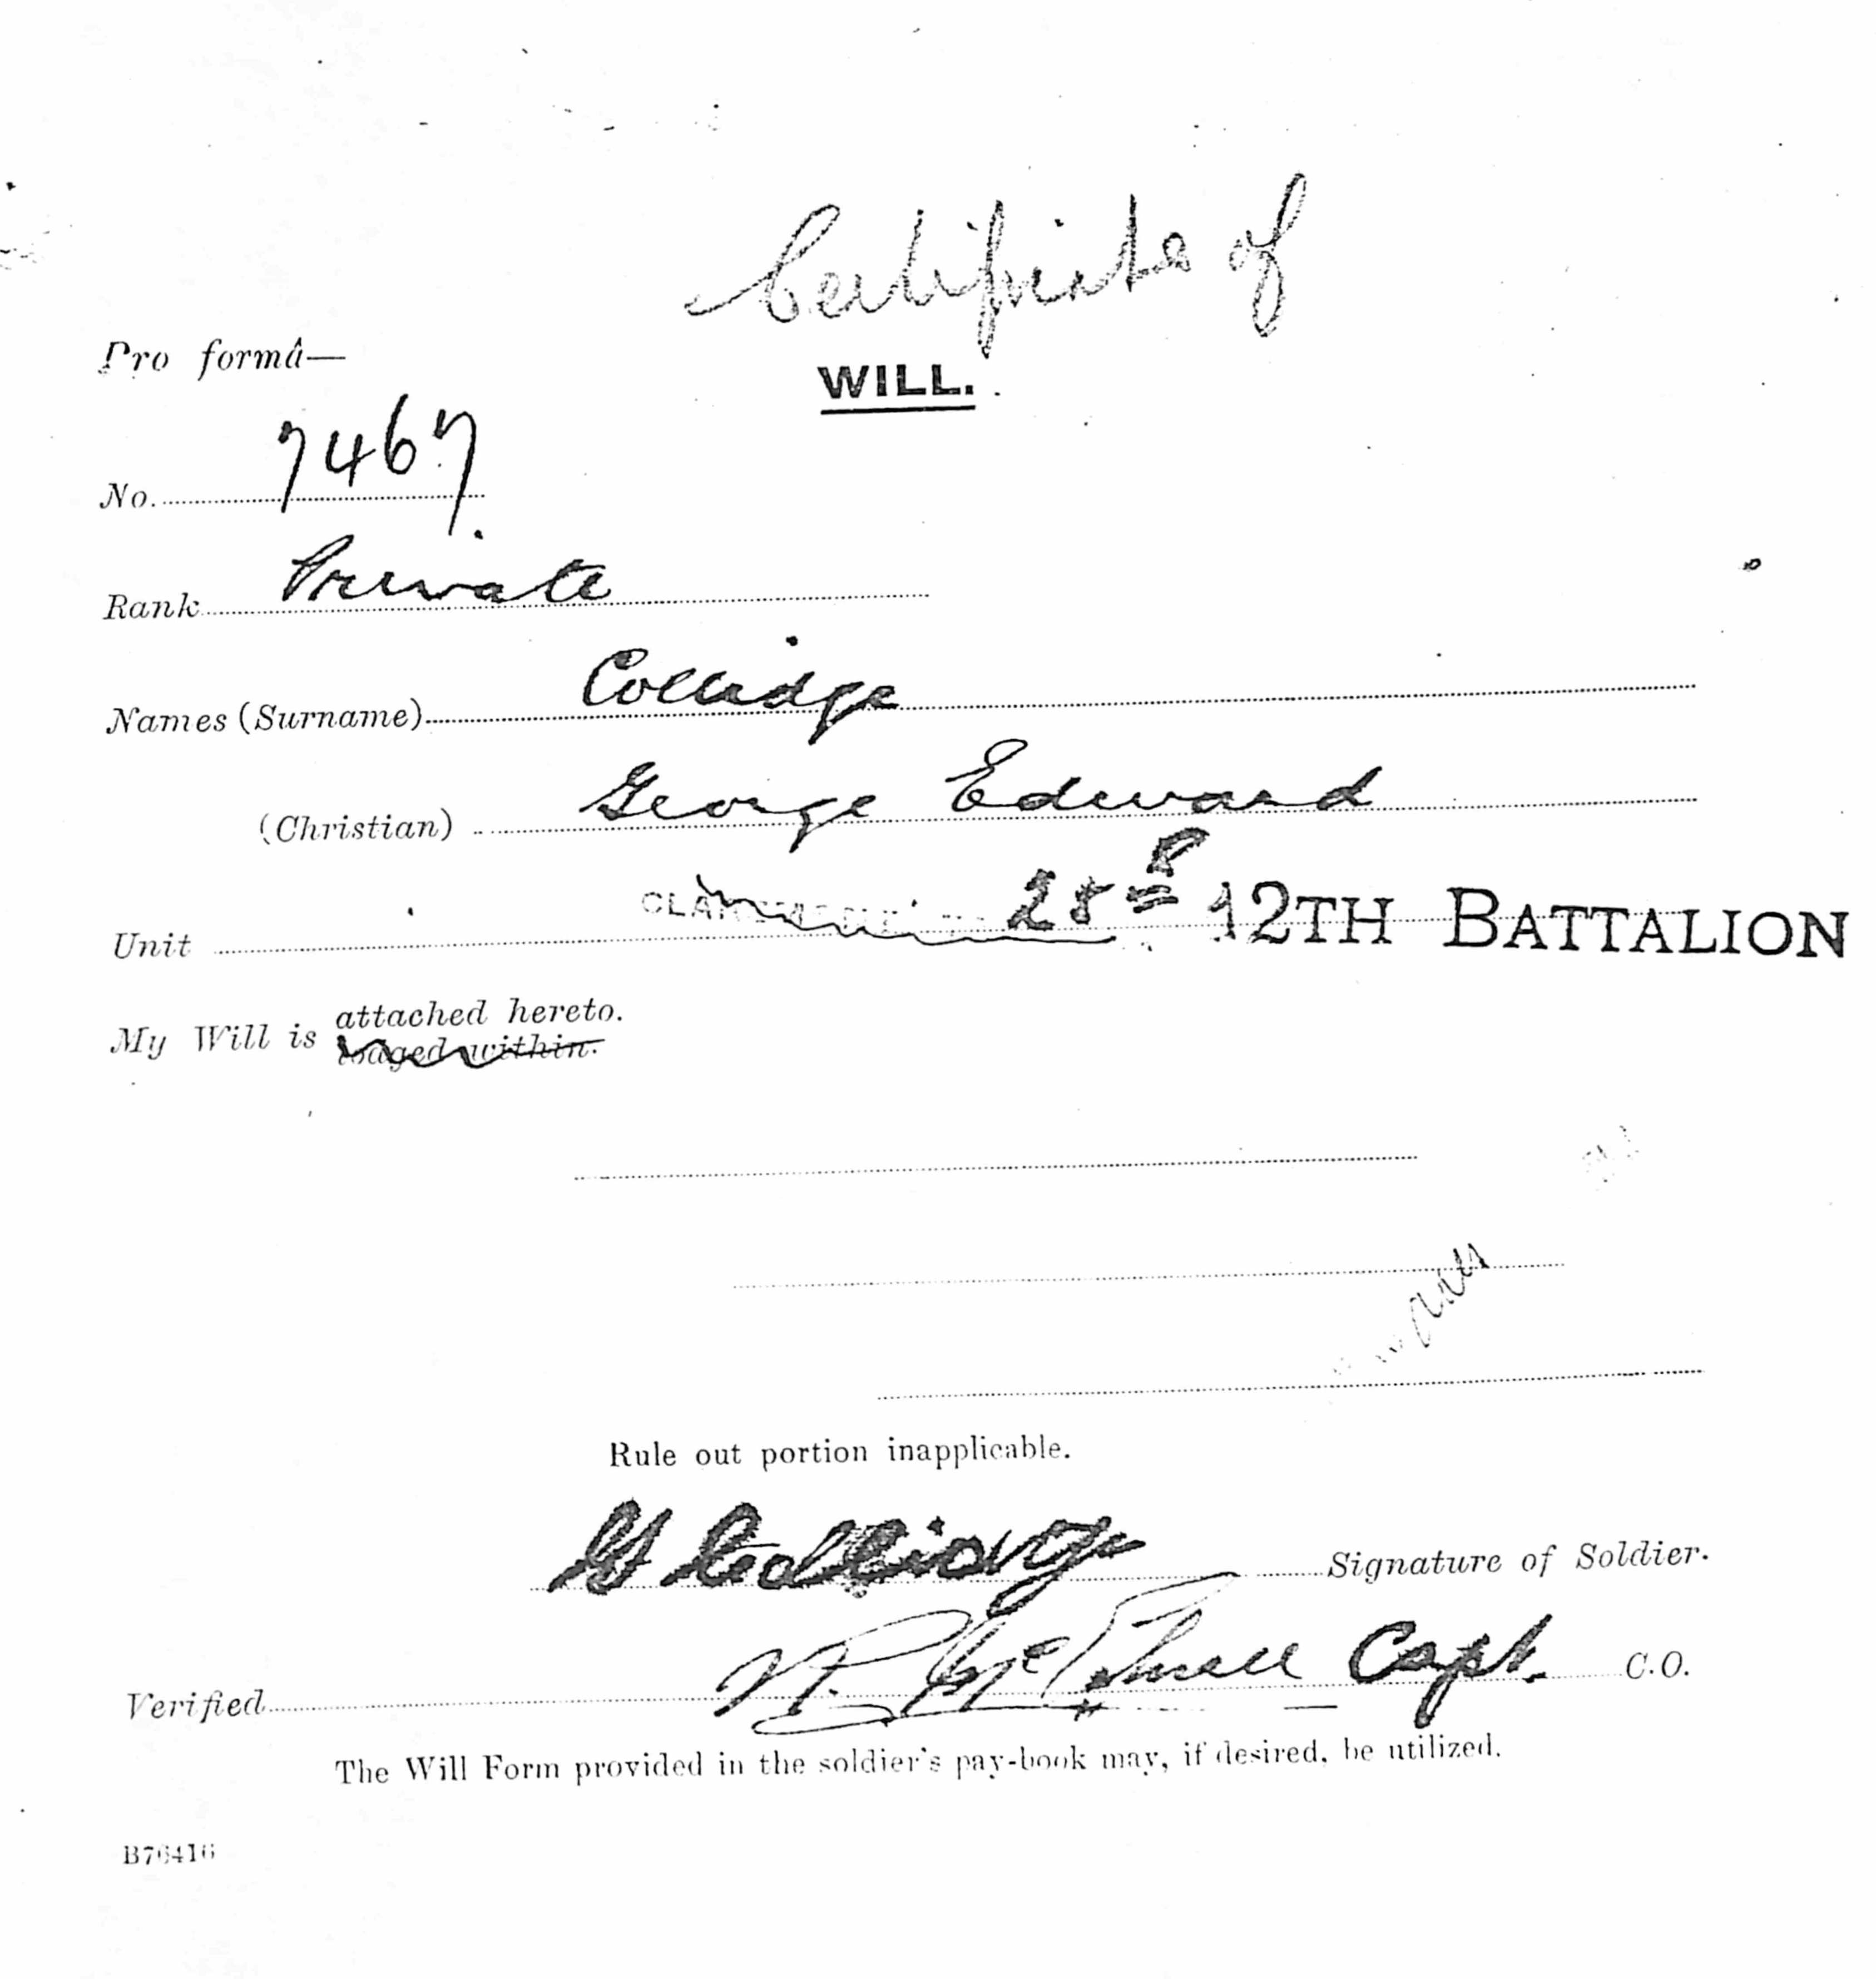 Certificate of
Pro formâ—
WILL.
No. 7467
Rank Private
Names (Surname) Collidge
(Christian) George Edward
Unit 25th 12TH BATTALION
My Will is attached hereto.
lodged within.
Rule out portion inapplicable.
G Collidge Signature of Soldier.
Verified Capt. C.O.
The Will Form provided in the soldier's pay-book may, if desired, be utilized.
B76416